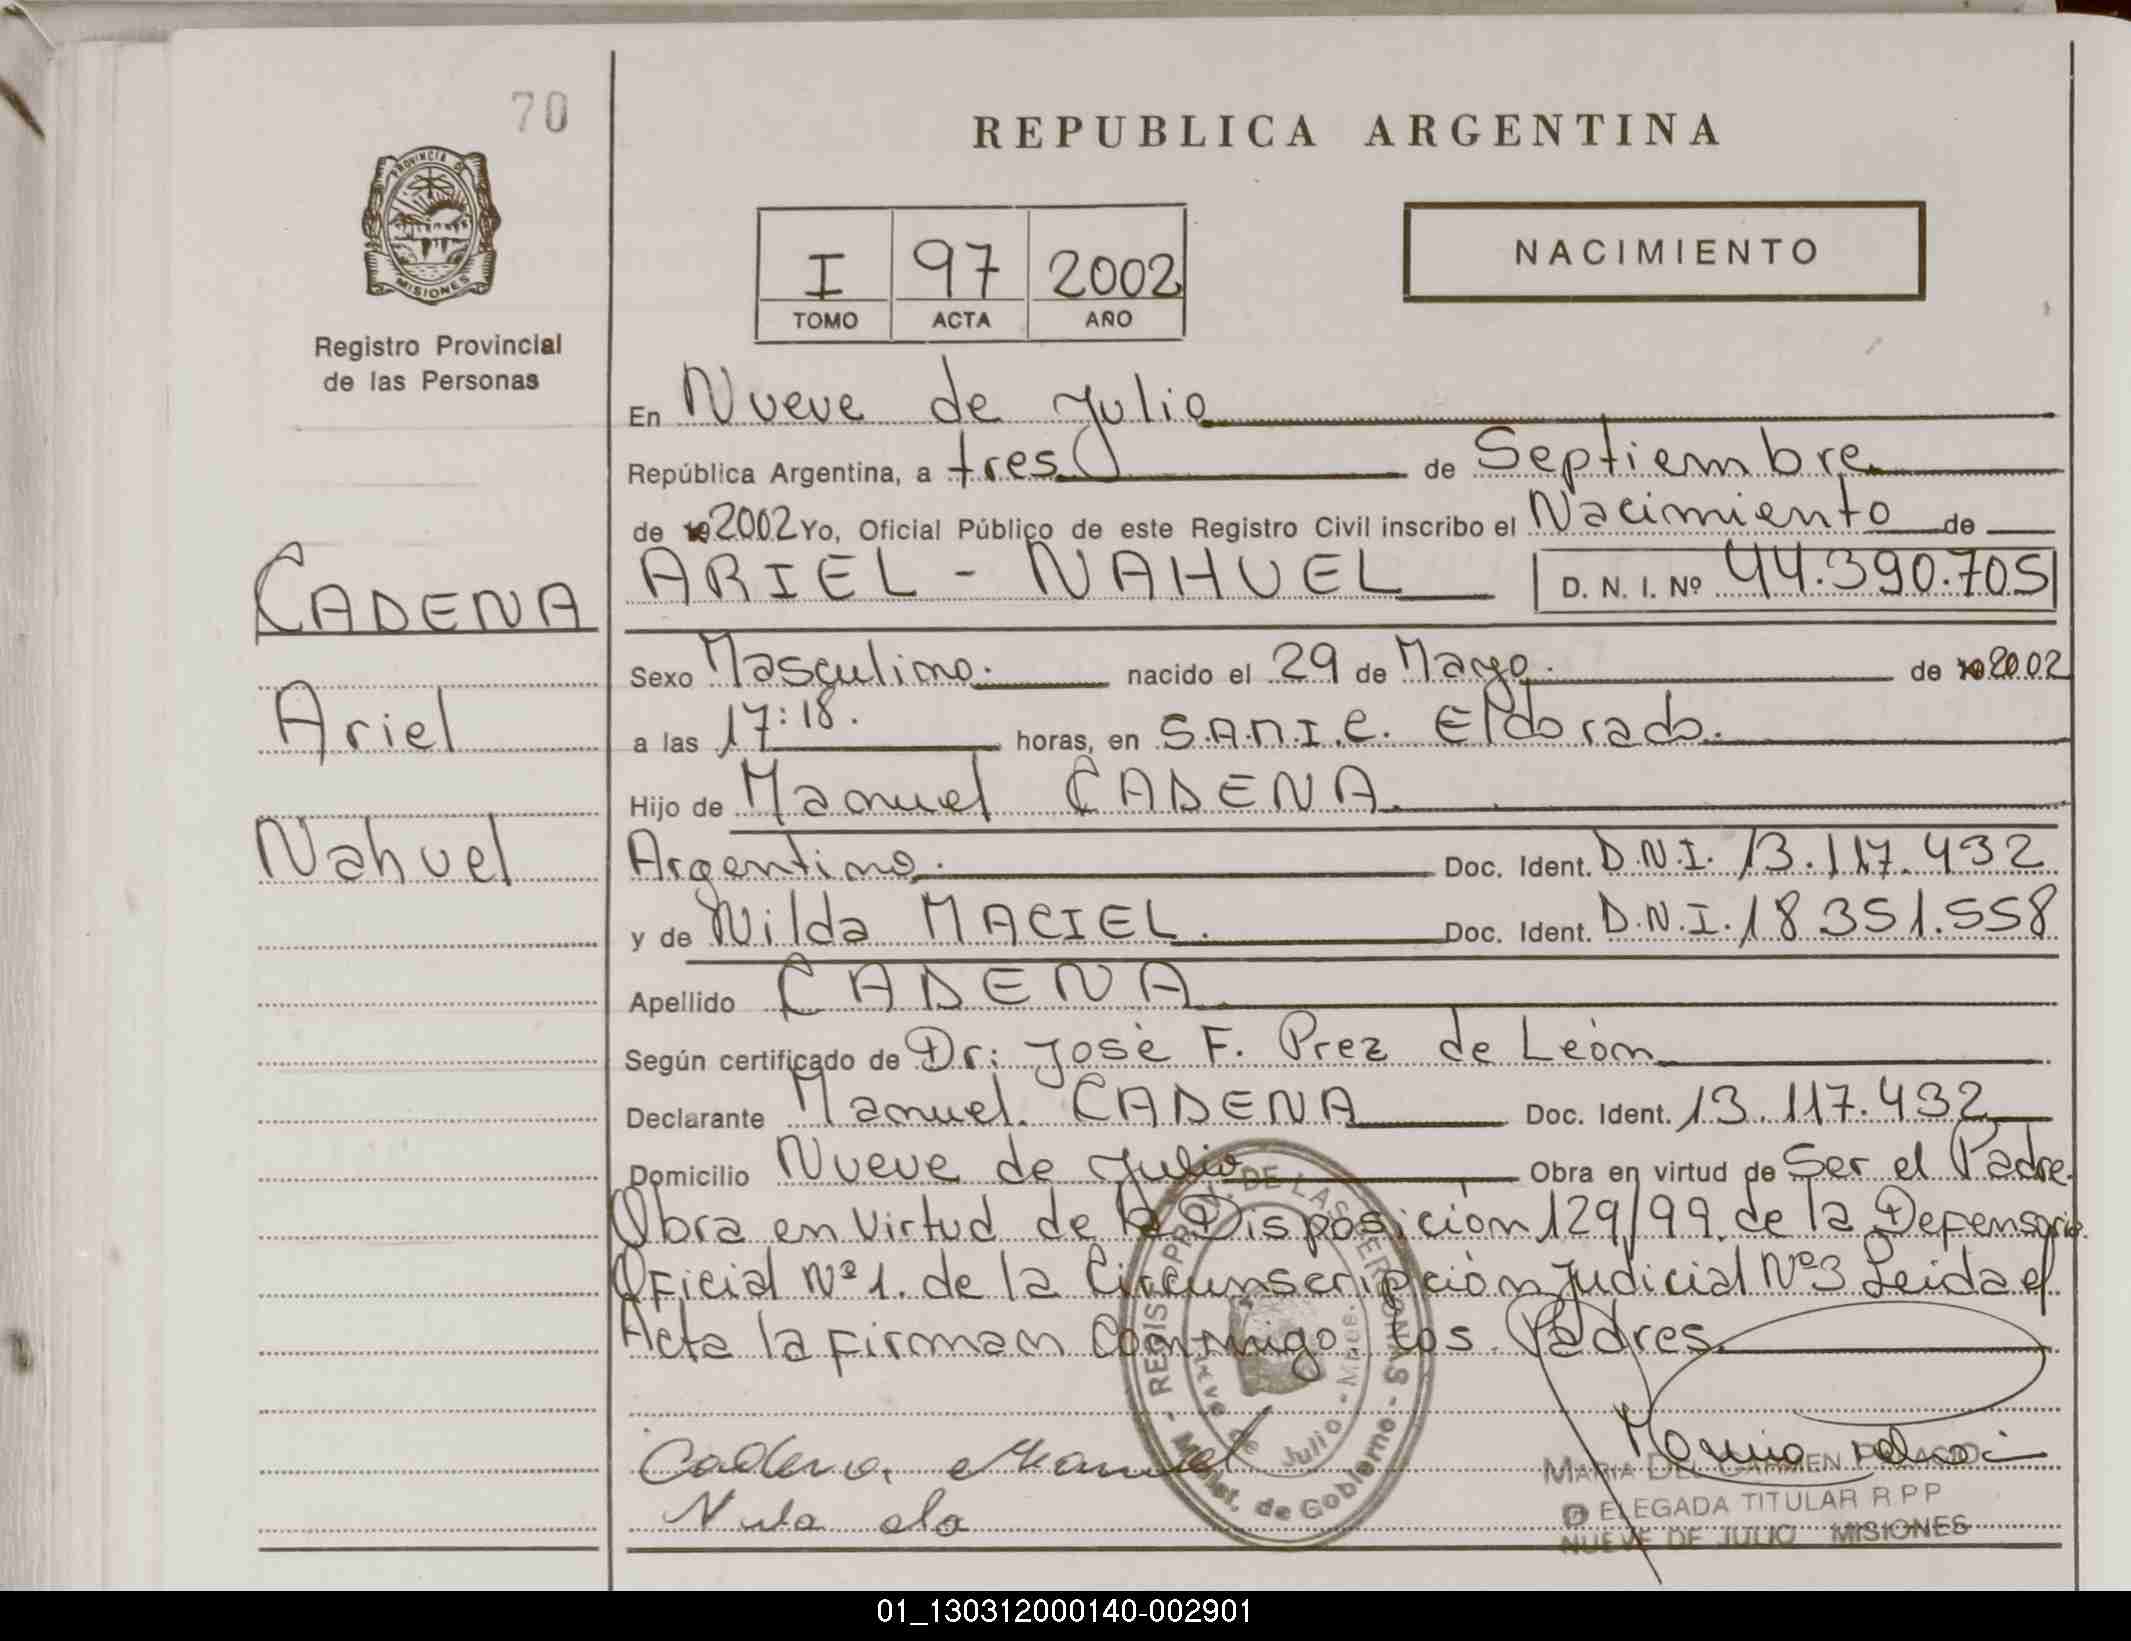 70
PROVINCIA DE
MISIONES
Registro Provincial
de las Personas
CADENA
Ariel
Nahuel
REPUBLICA ARGENTINA
I 97 2002
TOMO ACTA AÑO
NACIMIENTO
En Nueve de Julio
República Argentina, a tres de Septiembre
de 2002 Yo, Oficial Público de este Registro Civil inscribo el Nacimiento de
ARIEL - NAHUEL D. N. I. Nº 44.390.705
Sexo Masculino. nacido el 29 de Mayo. de 2002
a las 17:18. horas, en S.A.M.I.C. Eldorado.
Hijo de Manuel CADENA.
Argentino. Doc. Ident. D.N.I. 13.117.432
y de Nilda MACIEL. Doc. Ident. D.N.I. 18.351.558
Apellido CADENA
Según certificado de Dr: José F. Prez de León
Declarante Manuel CADENA Doc. Ident. 13.117.432
Domicilio Nueve de Julio Obra en virtud de Ser el Padre.
Obra en Virtud de la Disposición 129/99. de la Defensoria
Oficial Nº 1. de la Circunscripción Judicial Nº 3 Leida el
Acta la firman Conmigo. los Padres
Cadena Manuel
REGIST. PROV. DE LAS PERSONAS
Nueve de Julio - Mnes.
Minist. de Gobierno
MARIA DEL CARMEN PALACIO
DELEGADA TITULAR R.P.P
NUEVE DE JULIO MISIONES
01_130312000140-002901